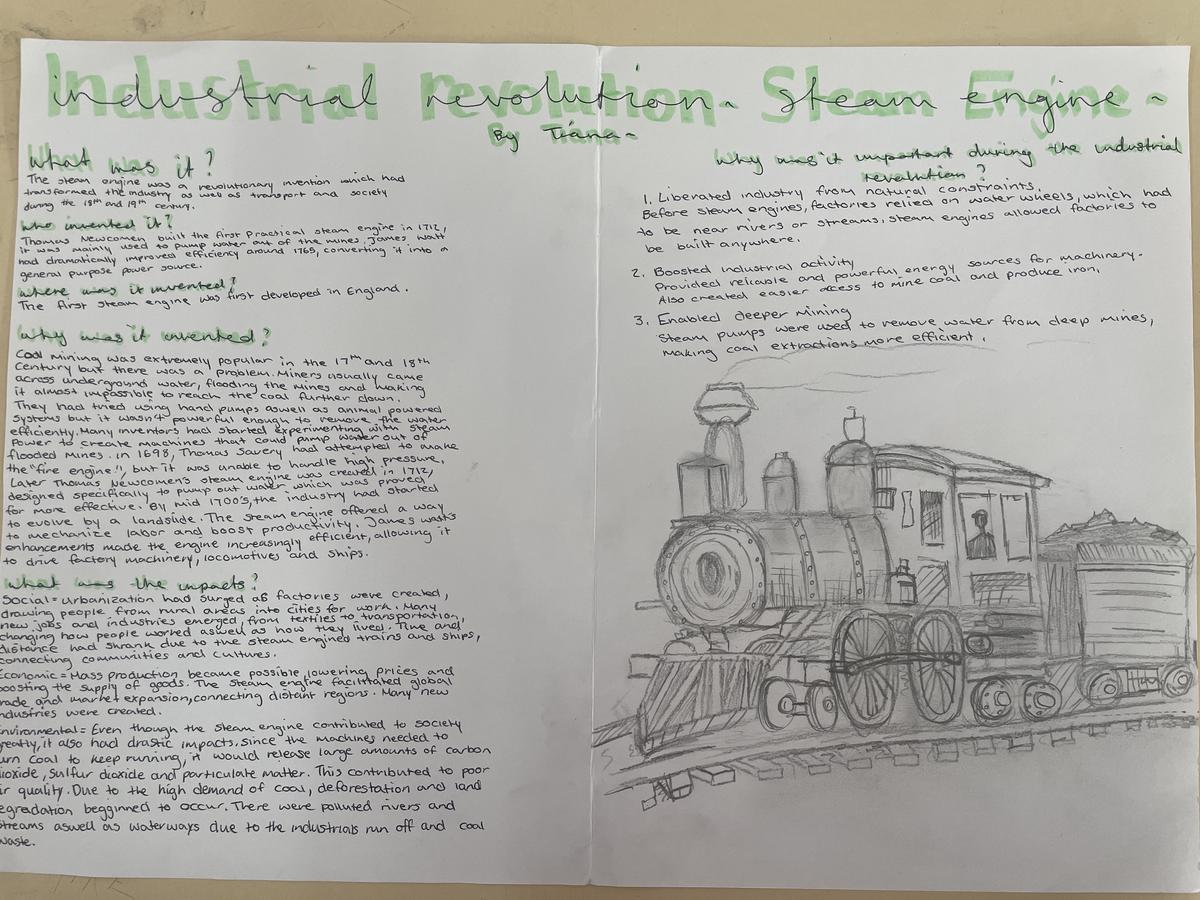 industrial revolution- Steam engine-
By Tiana-
What was it?
The steam engine was a revolutionary invention which had
transformed the industry as well as transport and society
during the 18th and 19th century.
who invented it?
Thomas Newcomen built the first Practical steam engine in 1712,
it was mainly used to pump water out of the mines. James Watt
had dramatically improved efficiency around 1769, converting it into a
general purpose power source.
where was it invented?
The first steam engine was first developed in England.
Why was it invented?
Coal mining was extremely popular in the 17th and 18th
Century but there was a problem. Miners usually came
across underground water, flooding the mines and making
it almost impossible to reach the coal further down.
They had tried using hand pumps aswell as animal powered
systems but it wasn't powerful enough to remove the water
efficiently. Many inventors had started experimenting with steam
Power to create machines that could pump water out of
flooded mines. in 1698, Thomas Savery had attempted to make
the "fire engine", but it was unable to handle high pressure.
Later Thomas Newcomen's steam engine was created in 1712,
designed specifically to pump out water which was proved
for more effective. By mid 1700's, the industry had started
to evolve by a landslide. The steam engine offered a way
to mechanize labor and boost productivity. James watt's
enhancements made the engine increasingly efficient, allowing it
to drive factory machinery, locomotives and ships.
What was the impacts?
Social = Urbanization had surged as factories were created,
drawing people from rural areas into cities for work. Many
new jobs and industries emerged, from textiles to transportation,
changing how people worked aswell as how they lived. Time and
distance had shrank due to the steam engined trains and ships,
connecting communities and cultures.
Economic = Mass production became possible, lowering prices and
oosting the supply of goods. The steam engine facilitated global
rade and market expansion, connecting distant regions. Many new
ndustries were created.
nvironmental = Even though the steam engine contributed to society
reatly, it also had drastic impacts. since the machines needed to
urn coal to keep running, it would release large amounts of carbon
ioxide, sulfur dioxide and particulate matter. This contributed to poor
ir quality. Due to the high demand of coal, deforestation and land
egradation begginned to occur. There were polluted rivers and
streams aswell as waterways due to the industrials run off and coal
waste.
Why was it important during the industrial
revolution?
1. Liberated industry from natural constraints.
Before steam engines, factories relied on water wheels, which had
to be near rivers or streams. steam engines allowed factories to
be built anywhere.
2. Boosted industrial activity
Provided reliable and powerful energy sources for machinery.
Also created easier access to mine coal and produce iron.
3. Enabled deeper mining
Steam pumps were used to remove water from deep mines,
making coal extractions more efficient.